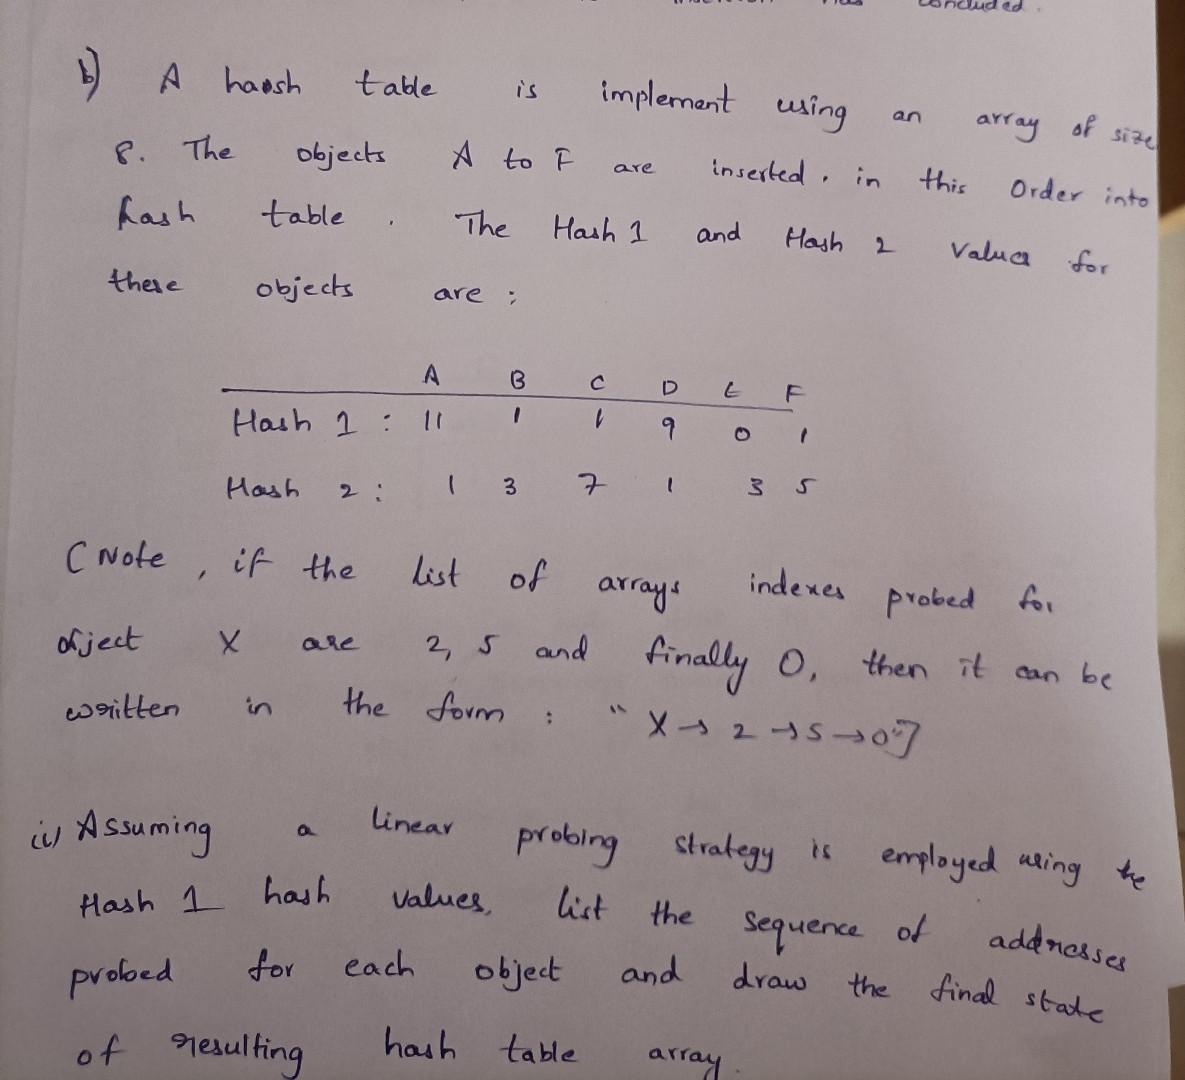 concluded.
b) A hash table is implement using an array of size
8. The objects A to F are inserted, in this Order into
hash table. The Hash 1 and Hash 2 Values for
these objects are :
A B C D E F
Hash 1 : 11 1 1 9 0 1
Hash 2 : 1 3 7 1 3 5
(Note, if the list of arrays indexes probed for
object X are 2, 5 and finally 0, then it can be
written in the form : "X → 2 → 5 → 0"]
Assuming a linear probing strategy is employed using the
Hash 1 hash values, list the sequence of addresses
probed for each object and draw the final state
of resulting hash table array.